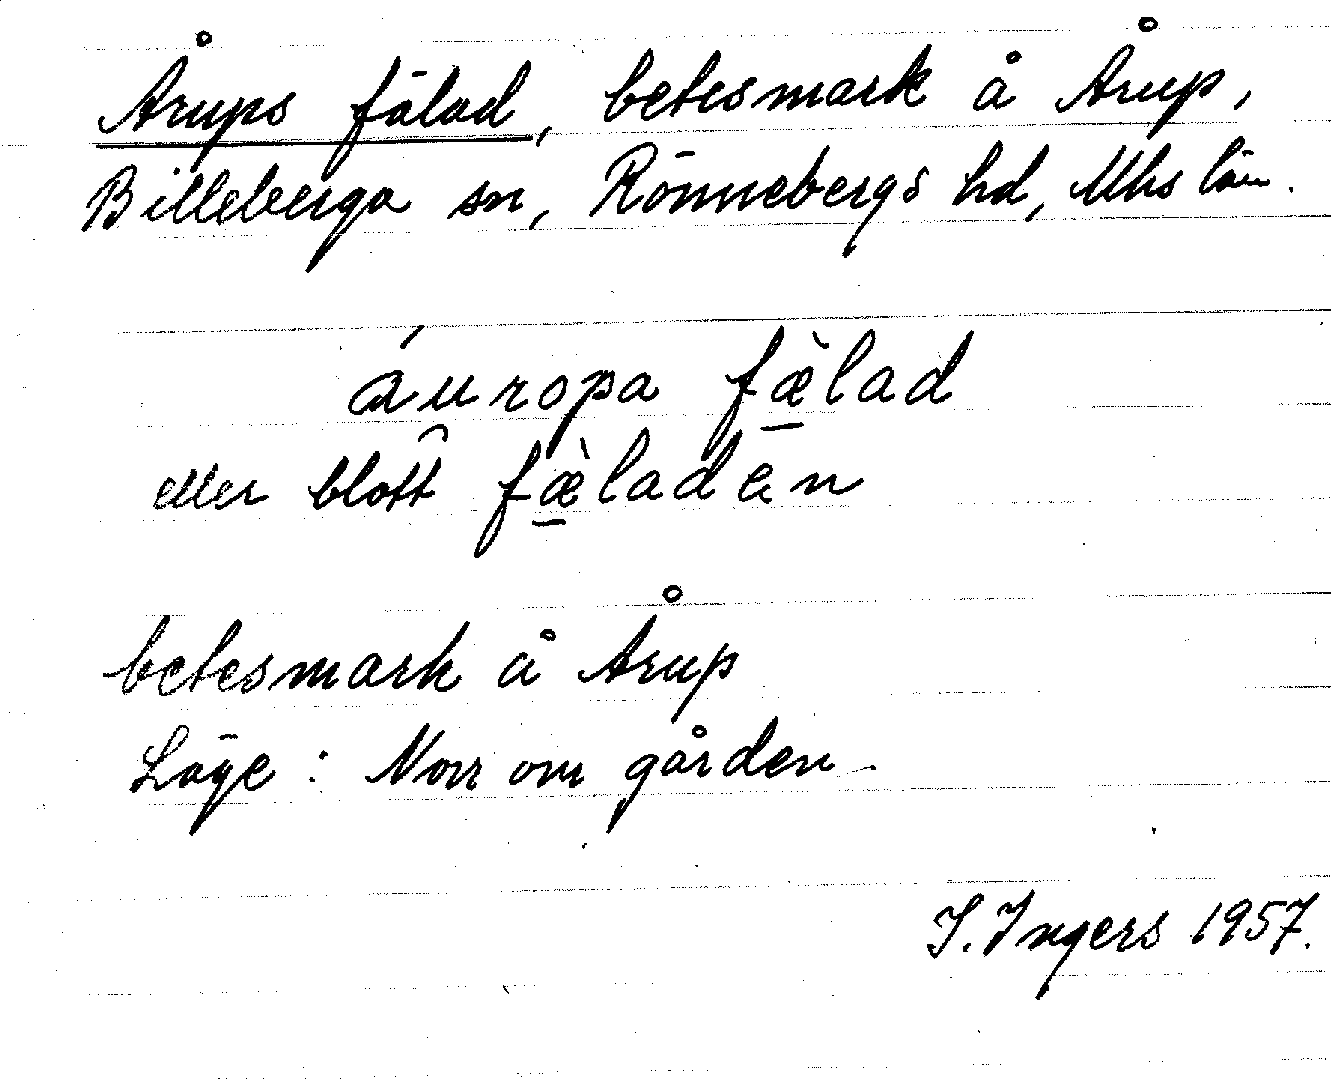 Årups fälad, betesmark å Årup,
Billeberga sn, Rönnebergs hd, Mhs län.
áuropa fæ̠̀lad
eller blott fæ̠̀laden
betesmark å Årup
Läge: Norr om gården.
I. Ingers 1957.